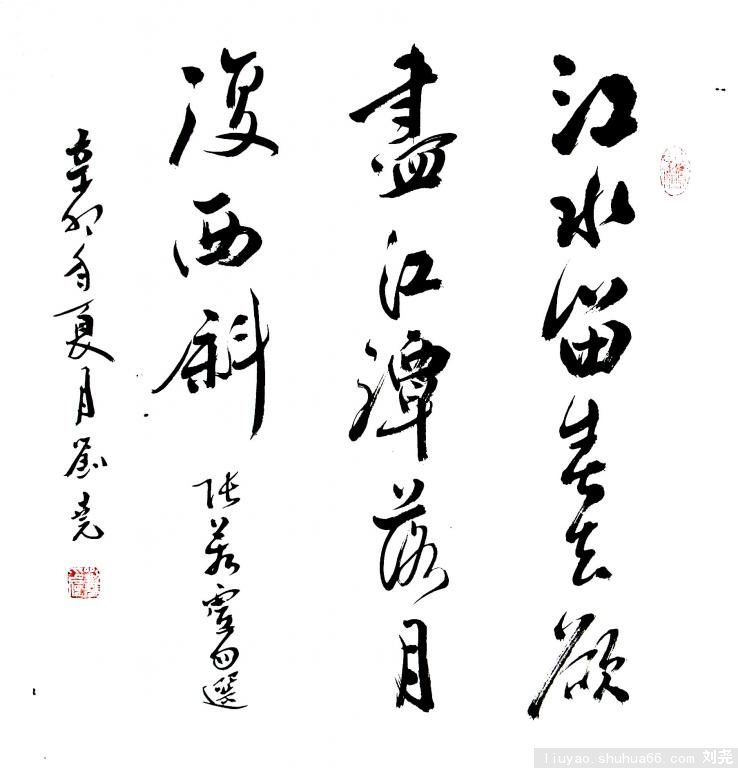 江水留春去欲
盡江潭落月
復西斜
張若虛句選
辛卯年夏月劉堯
liuyao.shuhua66.com 刘尧